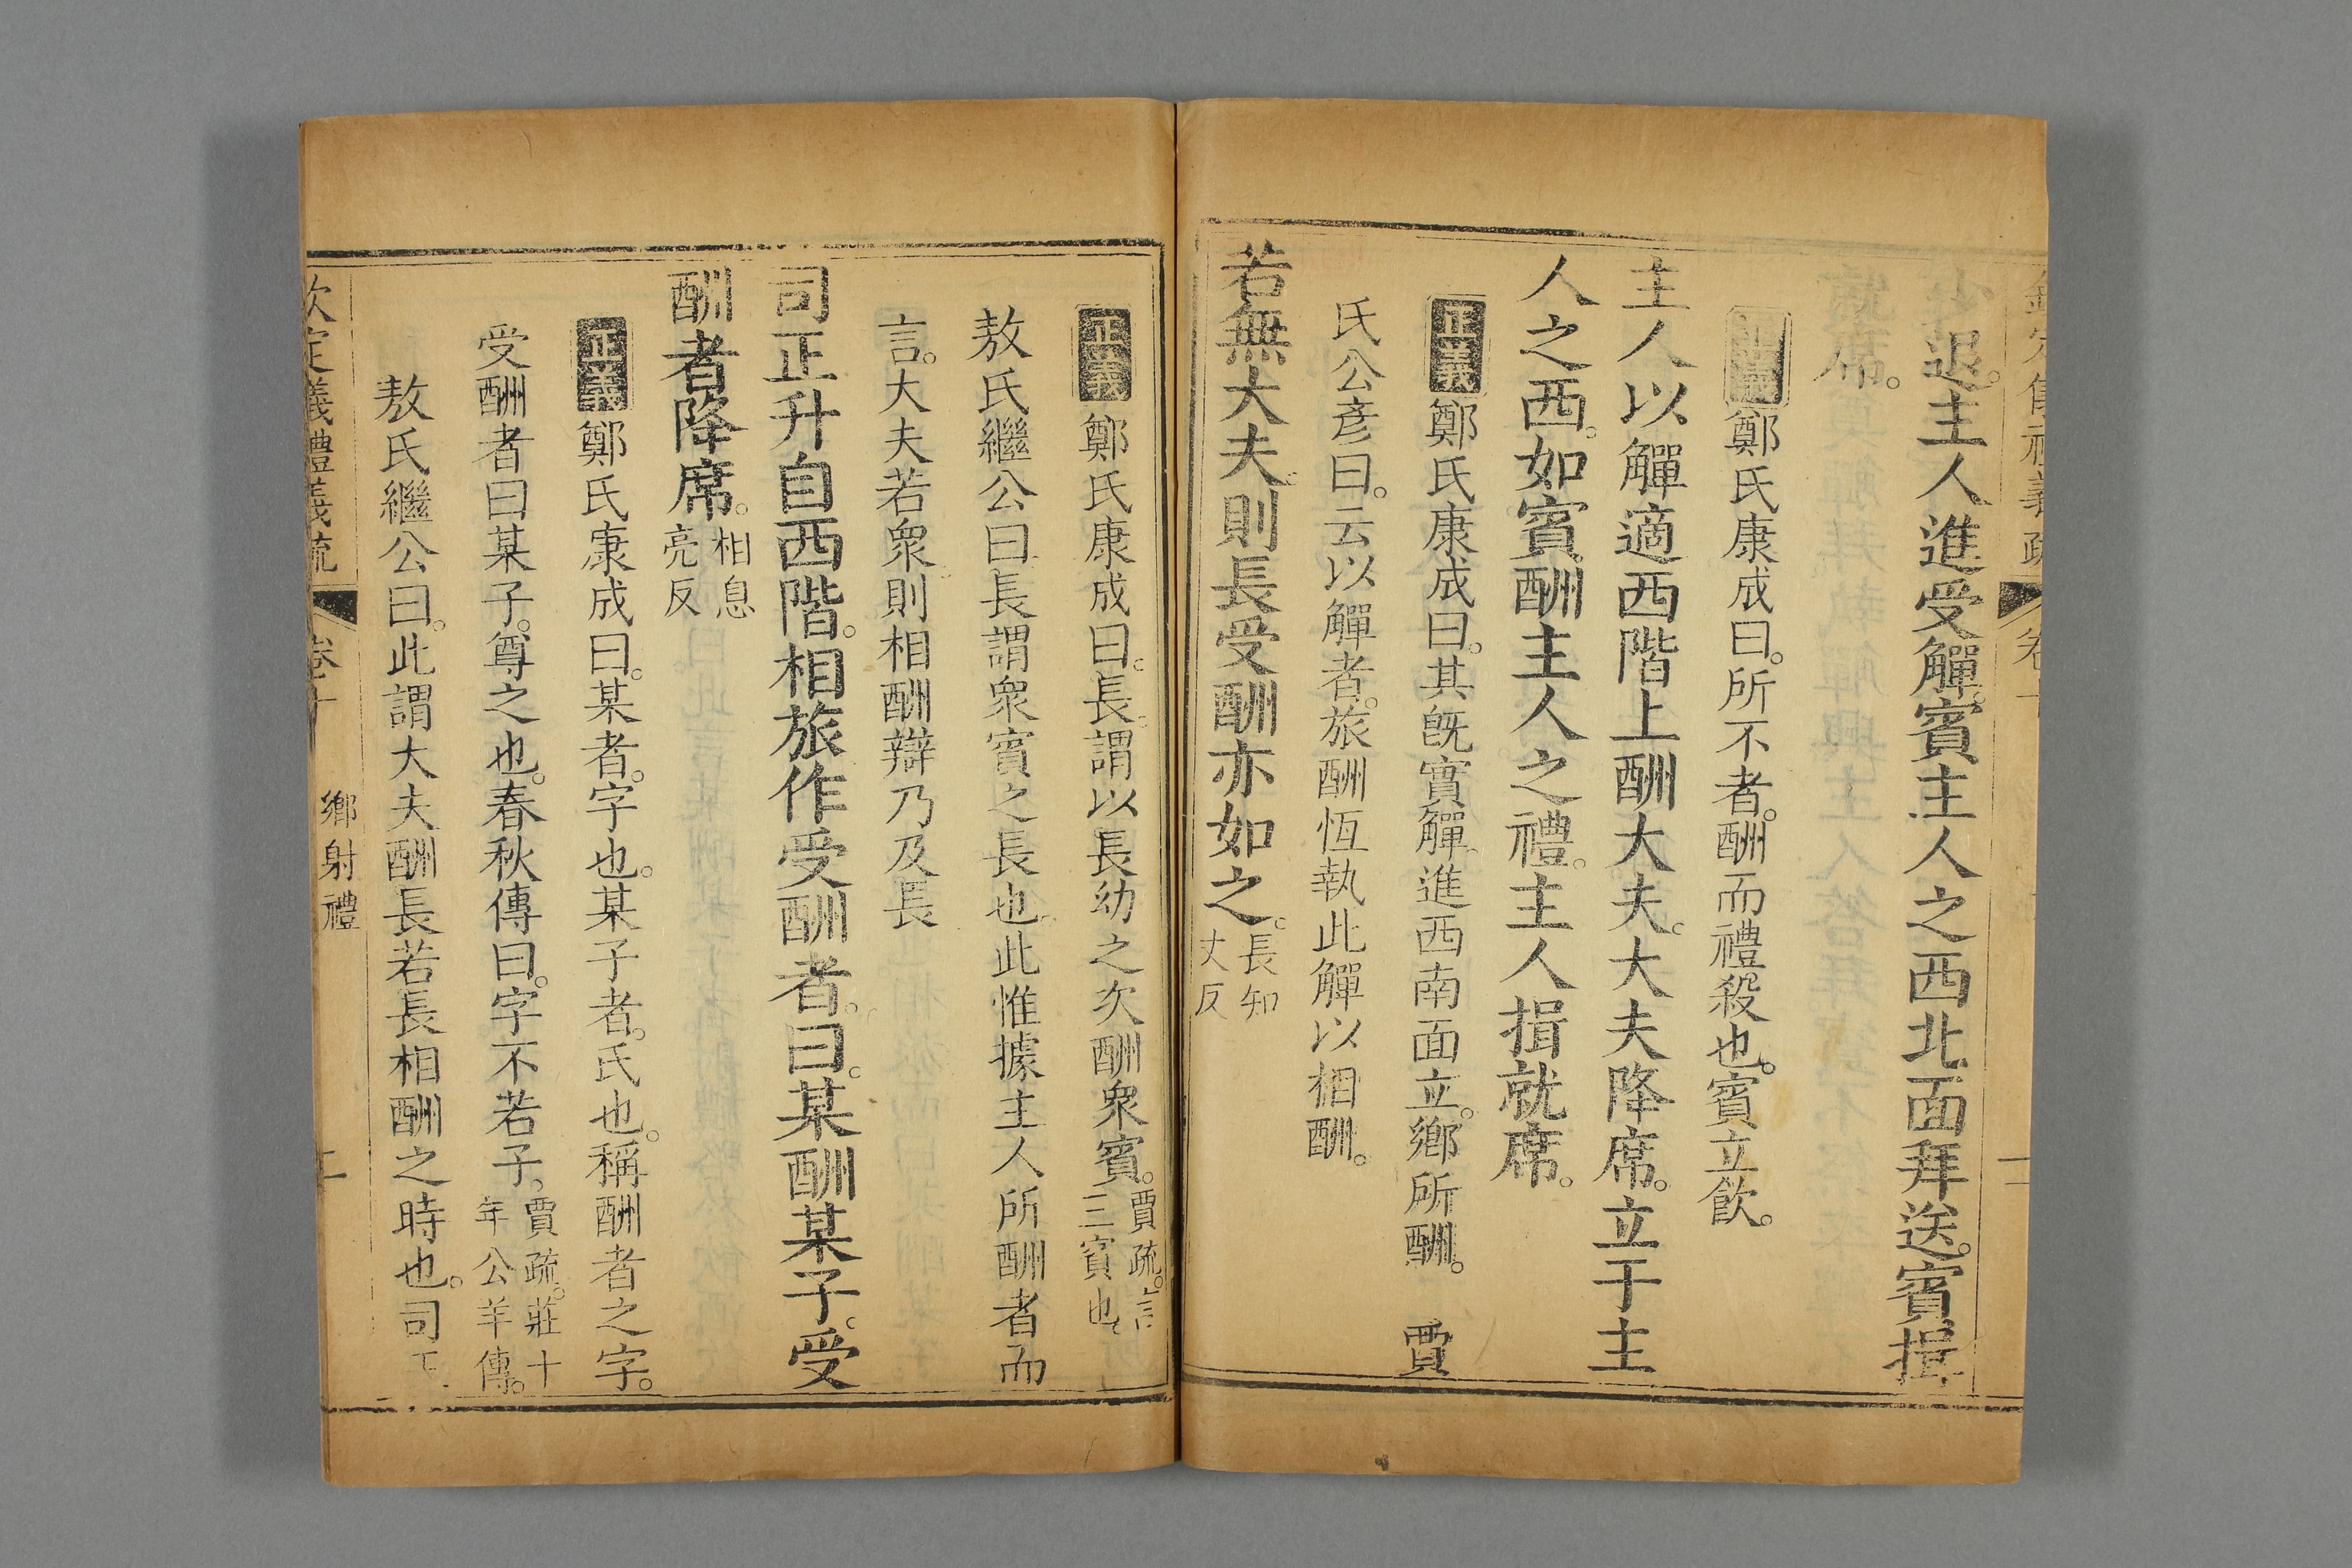 欽定儀禮義疏 卷十
少退。主人進受觶。賓主人之西北面拜送。賓揖
就席。
正義鄭氏康成曰。所不者。酬而禮殺也。賓立飲。
主人以觶適西階上酬大夫。大夫降席。立于主
人之西。如賓酬主人之禮。主人揖就席。
正義鄭氏康成曰。其旣實觶。進西南面立。鄉所酬。 賈
氏公彥曰。云以觶者。旅酬恆執此觶以相酬。
若無大夫。則長受酬亦如之。長知
丈反
正義鄭氏康成曰。長。謂以長幼之次酬衆賓。賈疏。言
三賓也。
敖氏繼公曰長謂衆賓之長也。此惟據主人所酬者而
言。大夫若衆則相酬辯乃及長
司正升自西階。相旅作受酬者。曰。某酬某子。受
酬者降席。相息
亮反
正義鄭氏康成曰。某者。字也。某子者。氏也。稱酬者之字。
受酬者曰某子。尊之也。春秋傳曰。字不若子。賈疏。莊十
年公羊傳。
敖氏繼公曰。此謂大夫酬長若長相酬之時也。司正
欽定儀禮義疏 卷十 鄉射禮